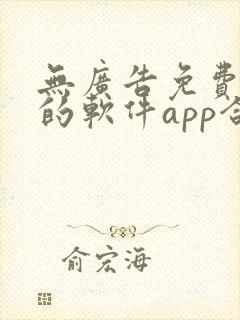 無廣告免費
的軟件app合
俞宏海